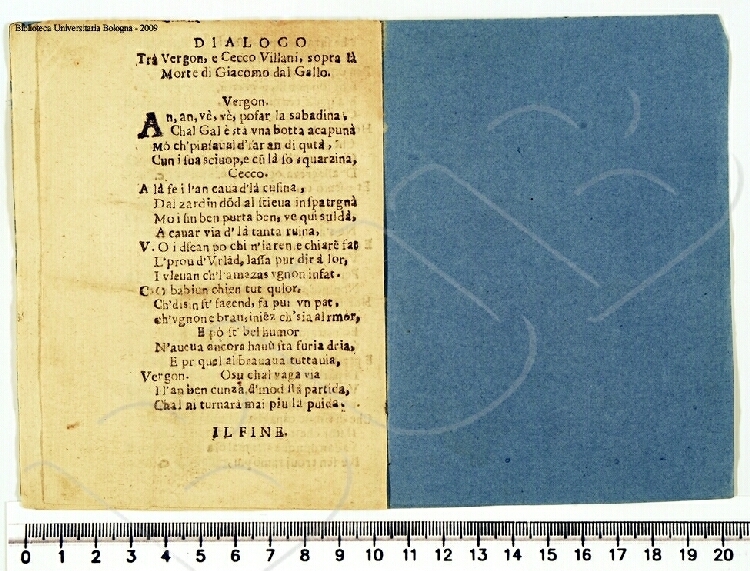 Biblioteca Universitaria Bologna - 2009
DIALOGO
Trà Vergon, e Cecco Villani, sopra là
Morte di Giacomo dal Gallo.
Vergon.
An, an, vè, vè, posar la sabadina,
Chal Gal è stà vna botta acapunà
Mò ch'pinsaual d'far an di qutà,
Cun i sua sciuop, e cũ là sò squarzina,
Cecco.
A là fe i l'an caua d'là cusina,
Dal zardin dõd al stieua inspatrgnà
Mo i sin ben purta ben, ve qui suldà,
A cauar via d'là tanta ruina,
V. O i dſean po chi n'la ren e chiarè fat
L'prou d'Vrlàd, lassa pur dir à lor,
I vleuan ch'l'amazas vgnon insat.
C. O babiun chien tut quior,
Ch'dis n st' fazend, fa pur vn pat,
ch'vgnon e brau, iniêz ch'sia al rmor,
E pò st' bel humor
N'aueua ancora hauũ sta furia dria,
E pr quel al brauaua tuttauia,
Vergon. Osu chal vaga via
I l'an ben cunzà, d'mod stà partida,
Chal ni turnarà mai piu la puida.
IL FINE.
0 1 2 3 4 5 6 7 8 9 10 11 12 13 14 15 16 17 18 19 20